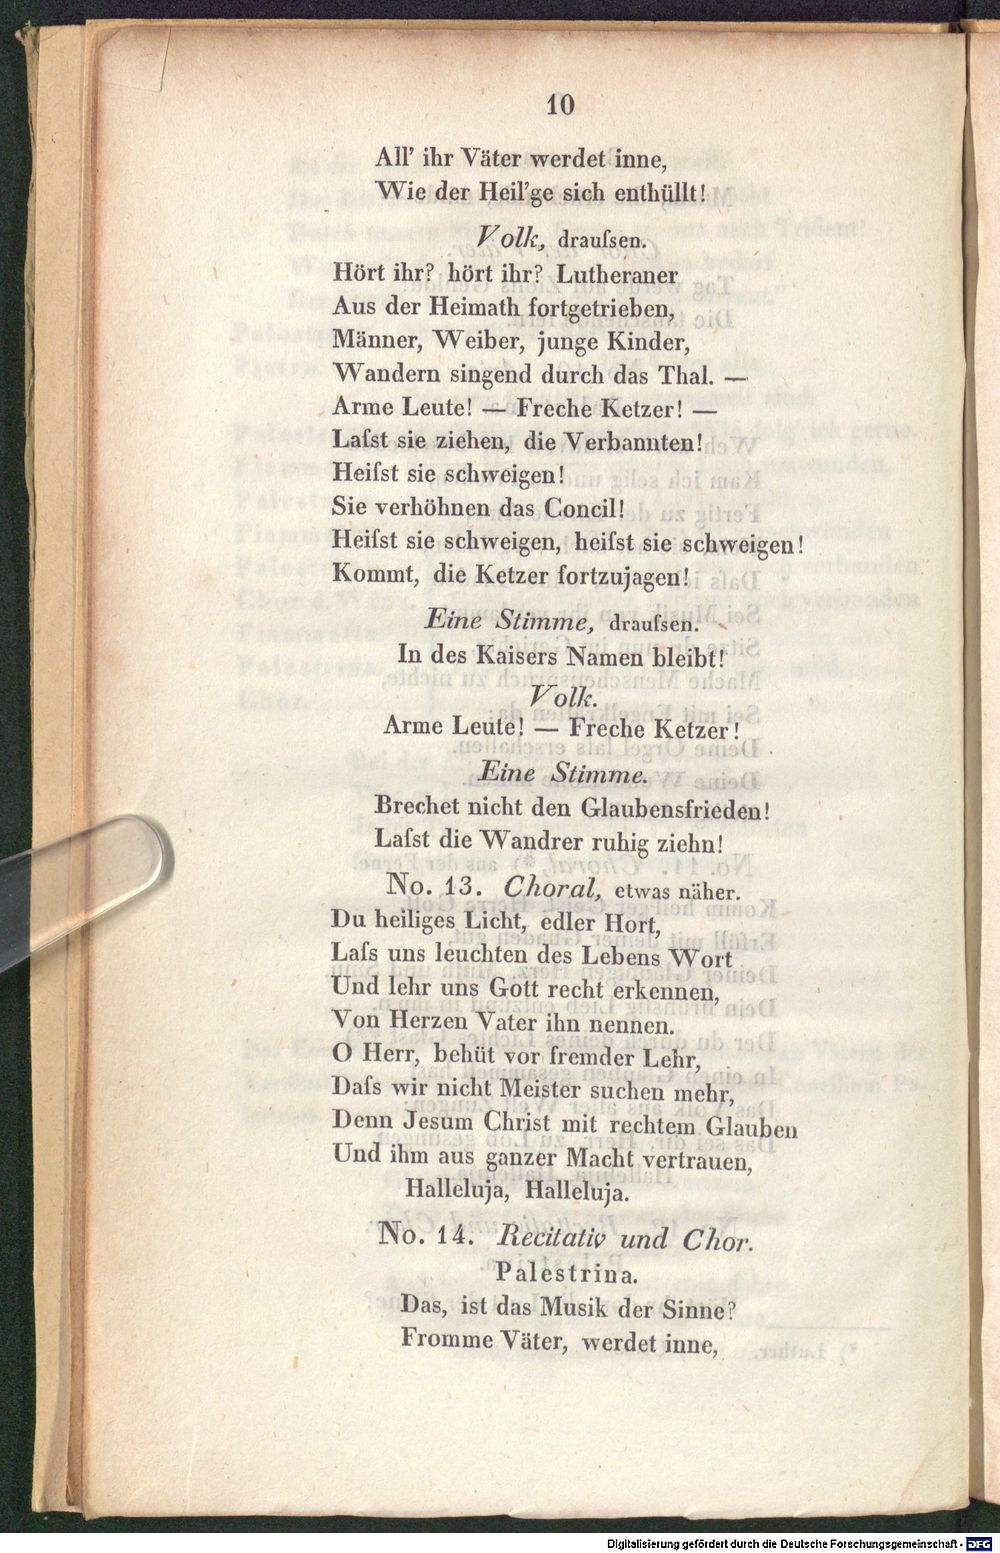 10
All' ihr Väter werdet inne,
Wie der Heil'ge sich enthüllt!
Volk, drauſsen.
Hört ihr? hört ihr? Lutheraner
Aus der Heimath fortgetrieben,
Männer, Weiber, junge Kinder,
Wandern singend durch das Thal. —
Arme Leute! — Freche Ketzer! —
Laſst sie ziehen, die Verbannten!
Heiſst sie schweigen!
Sie verhöhnen das Concil!
Heiſst sie schweigen, heiſst sie schweigen!
Kommt, die Ketzer fortzujagen!
Eine Stimme, drauſsen.
In des Kaisers Namen bleibt!
Volk.
Arme Leute! — Freche Ketzer!
Eine Stimme.
Brechet nicht den Glaubensfrieden!
Laſst die Wandrer ruhig ziehn!
No. 13. Choral, etwas näher.
Du heiliges Licht, edler Hort,
Laſs uns leuchten des Lebens Wort
Und lehr uns Gott recht erkennen,
Von Herzen Vater ihn nennen.
O Herr, behüt vor fremder Lehr,
Daſs wir nicht Meister suchen mehr,
Denn Jesum Christ mit rechtem Glauben
Und ihm aus ganzer Macht vertrauen,
Halleluja, Halleluja.
No. 14. Recitativ und Chor.
Palestrina.
Das, ist das Musik der Sinne?
Fromme Väter, werdet inne,
Digitalisierung gefördert durch die Deutsche Forschungsgemeinschaft - DFG